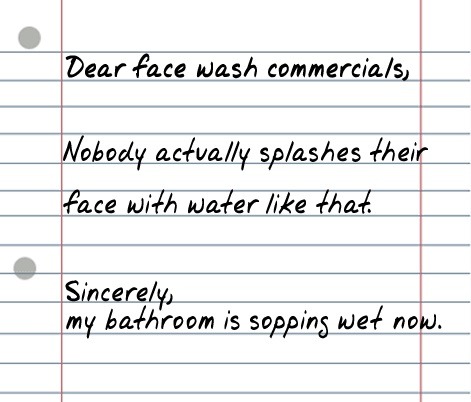 Dear face wash commercials,
Nobody actually splashes their
face with water like that.
Sincerely,
my bathroom is sopping wet now.